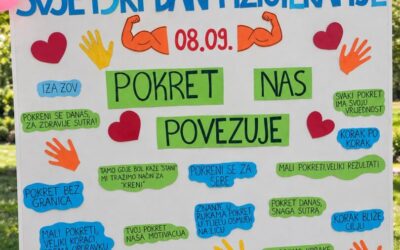 SVJETSKI DAN FIZIOTERAPIJE
08.09.
POKRET NAS
POVEZUJE
IZA ZOV
POKRENI SE DANAS,
ZA ZDRAVIJE SUTRA!
SVAKI POKRET
IMA SVOJU
VRIJEDNOST!
KORAK PO
KORAK
TAMO GDJE BOL KAŽE "STANI"
MI TRAŽIMO NAČIN ZA
"KRENI"
POKRENI SE ZA
SEBE
MALI POKRETI, VELIKI REZULTATI
POKRET BEZ
GRANICA
ZNANJE U
RUKAMA POKRET
U TIJELU OSMIJEH
NA LICU
POKRET DANAS,
SNAGA SUTRA
KORAK BLIŽE
CILJU
MALI POKRETI,
VELIKI KORACI
TVOJ POKRET
NAŠA MOTIVACIJA